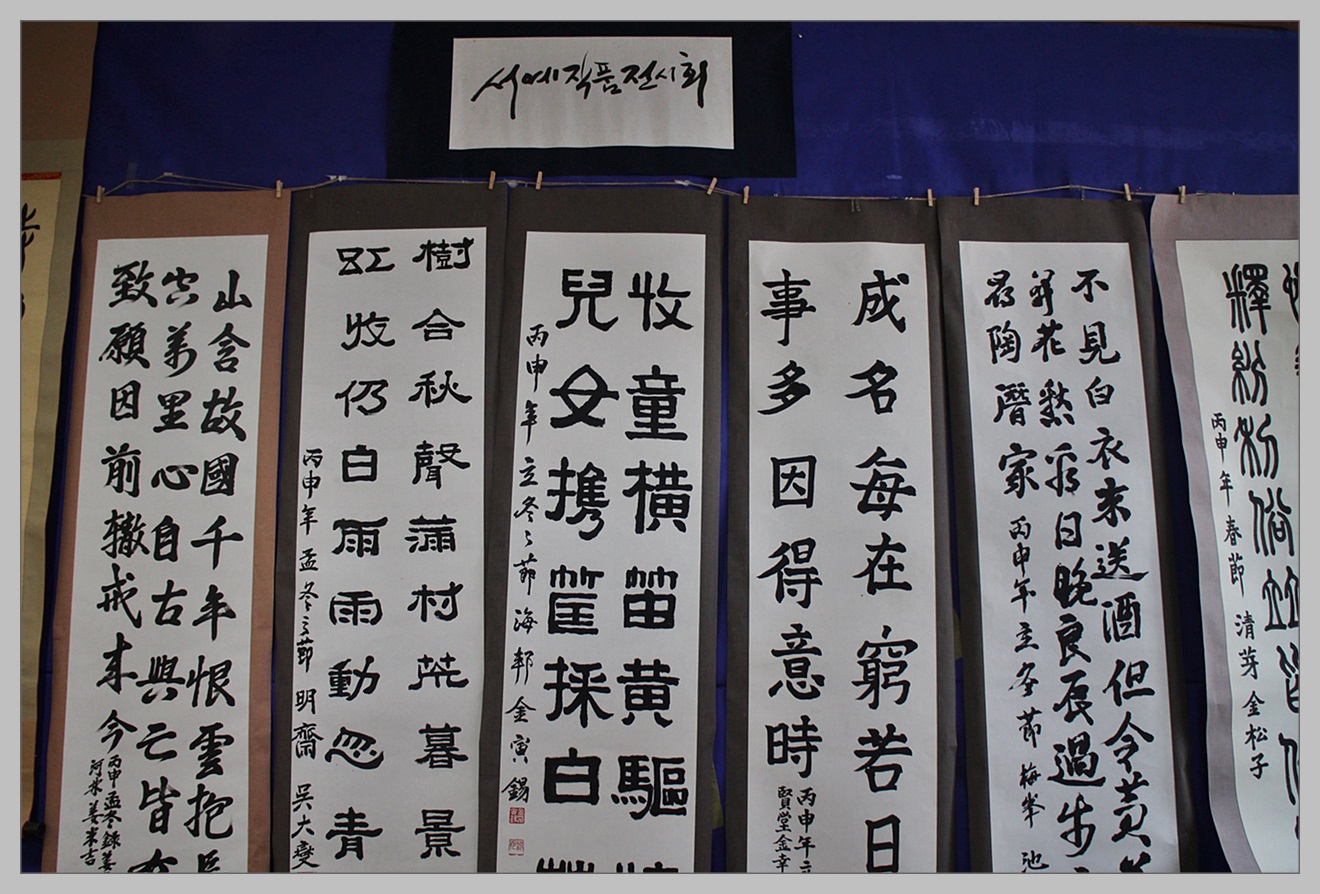 서예작품전시회
山含故國千年恨雲抱長
穴弟里心自古興亡皆有
致願因前轍戒未今
丙申孟冬錄姜
樹合秋聲蒲村荒暮景
虹收仍白雨雨動忽青
丙申年孟冬之節 明齋 吳大燮
牧童橫笛黄驅犢
兒女携筐採白
丙申年立冬之節 海邨 金寅錫
成名每在窮若日
事多因得意時
丙申年立
賢堂金幸
不見白衣來送酒但令黄
尋花愁爲日晚良辰過步
尋陶潛家
丙申年立冬節 梅峯 池
釋紛利俗竝皆
丙申年春節 清芽 金松子